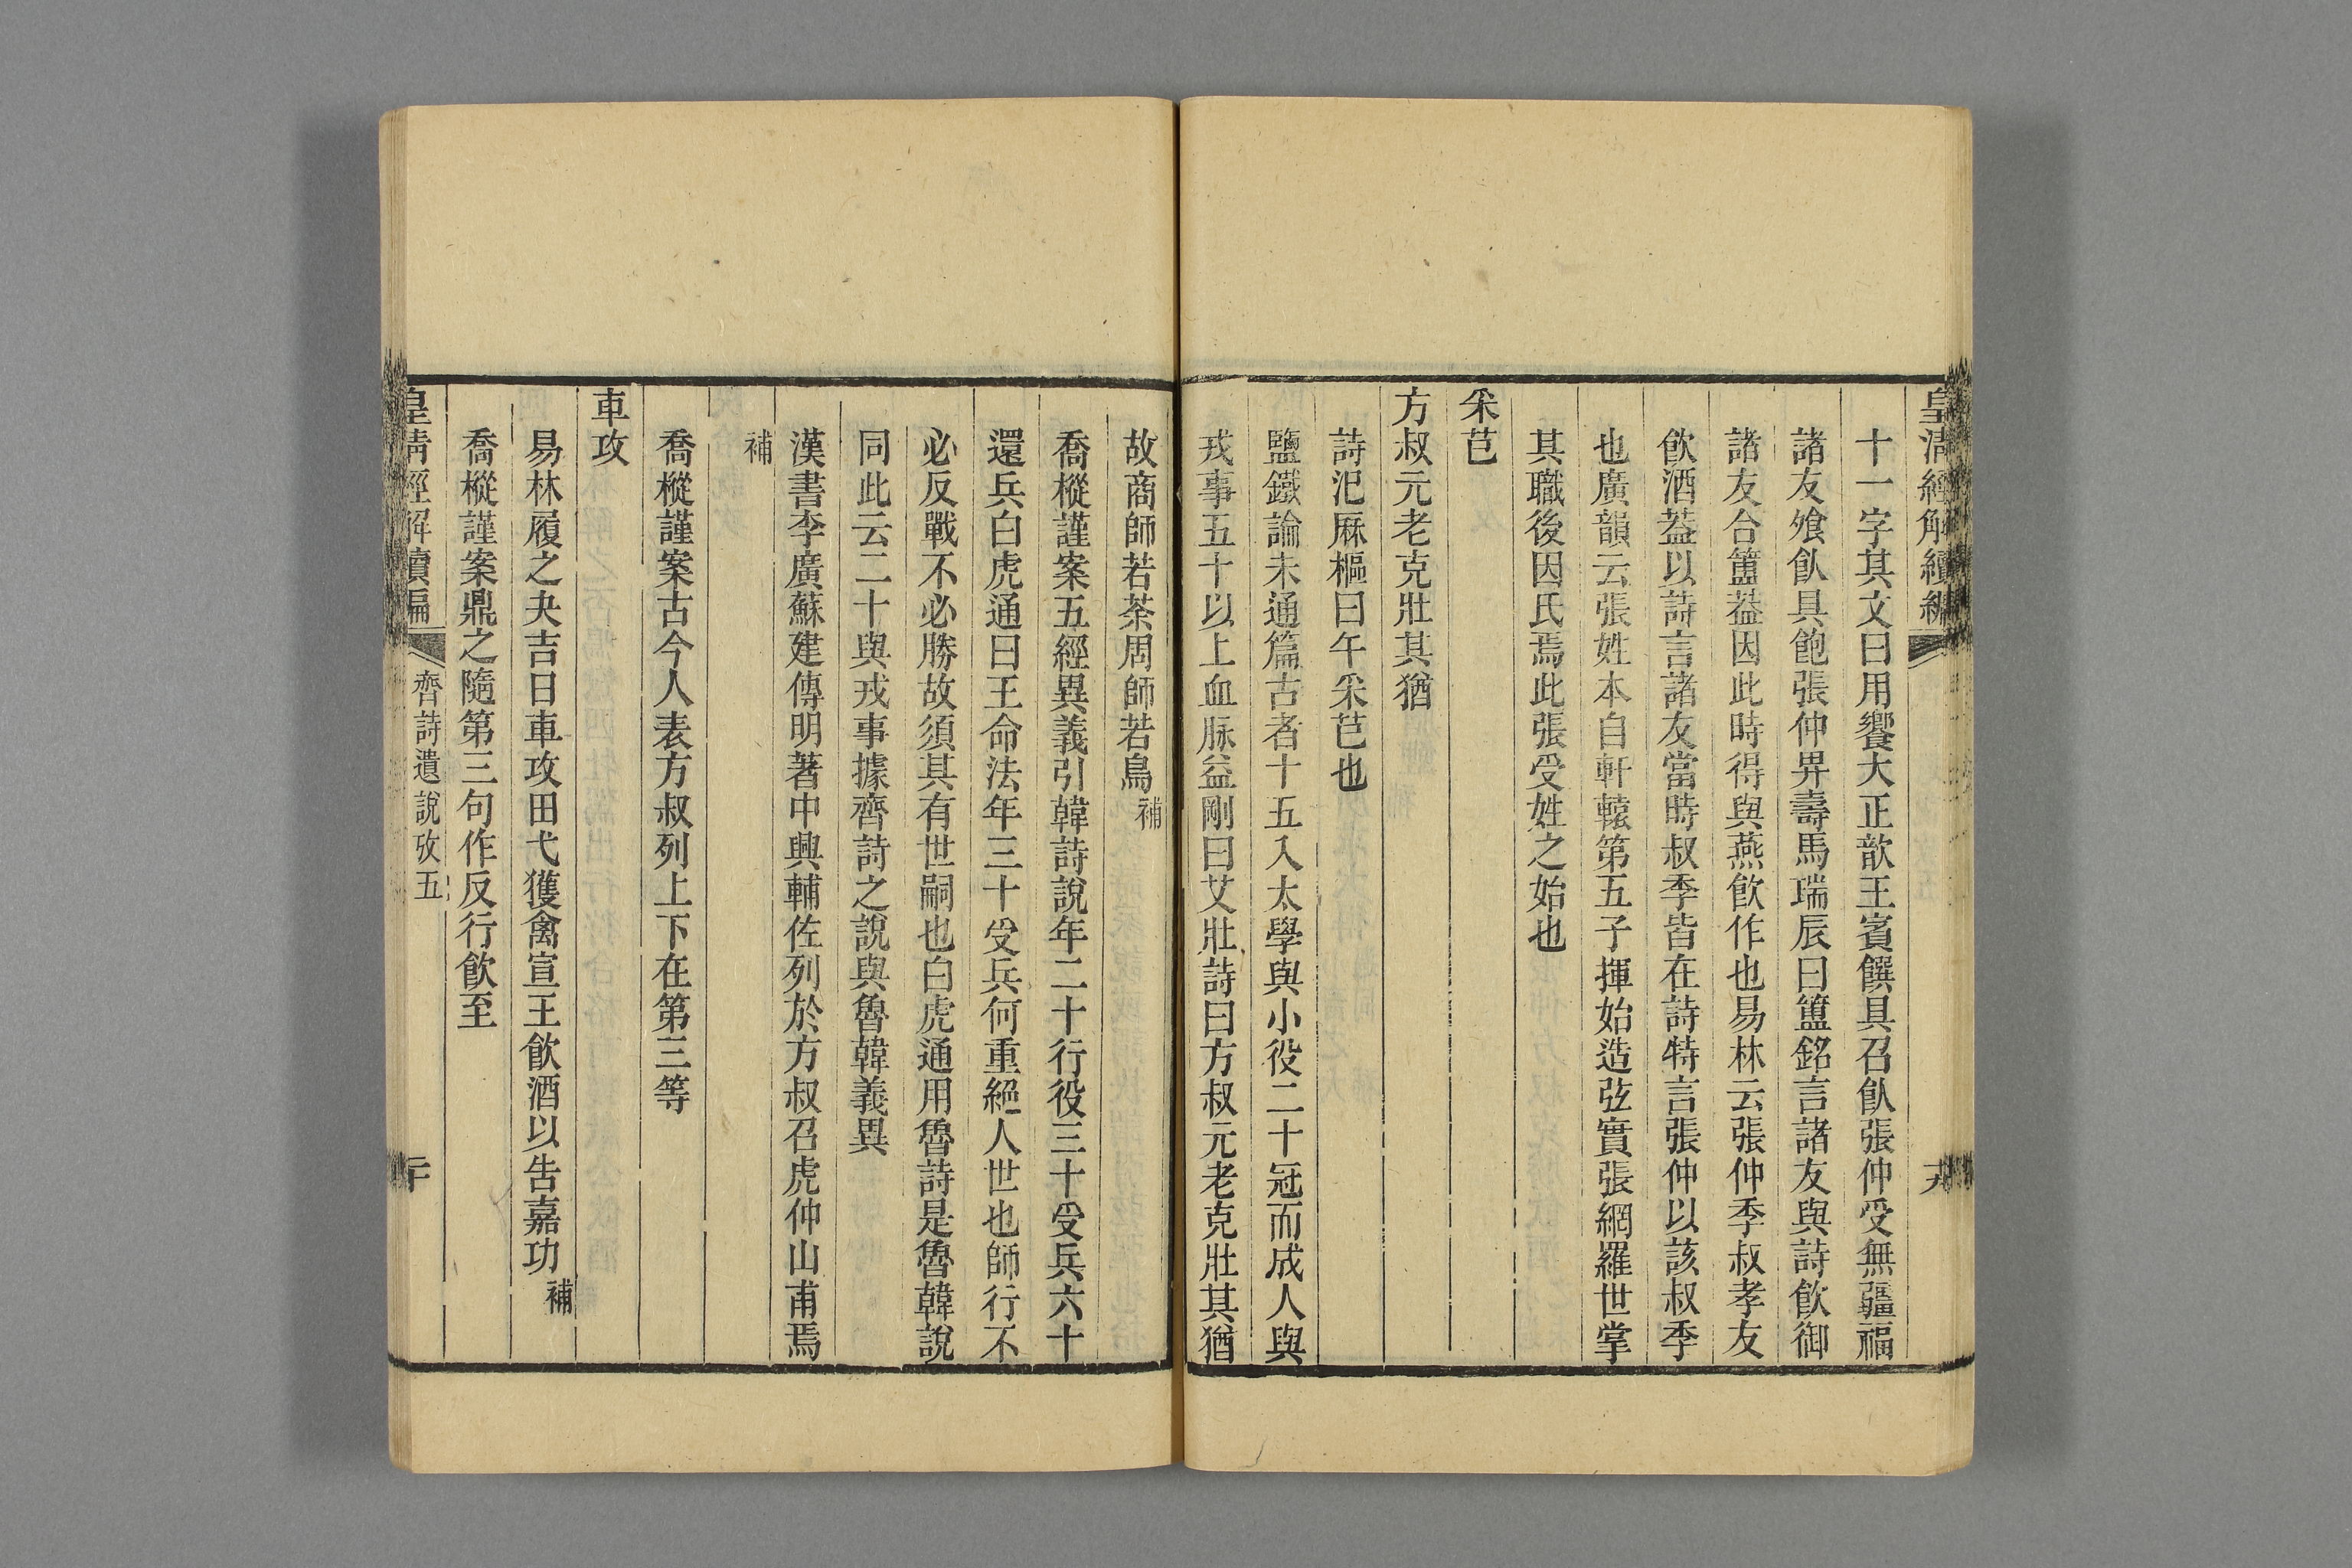 皇清經解續編 十九
十一字其文曰用饗大正歆王賓饌具召飤張仲受無疆福
諸友飧飤具飽張仲畀壽馬瑞辰曰簠銘言諸友與詩飲御
諸友合簠葢因此時得與燕飲作也易林云張仲季叔孝友
飲酒葢以詩言諸友當時叔季皆在詩特言張仲以該叔季
也廣韻云張姓本自軒轅第五子揮始造弦實張網羅世掌
其職後因氏焉此張受姓之始也
采芑
方叔元老克壯其猶
詩汜厤樞曰午采芑也
鹽鐵論未通篇古者十五入太學與小役二十冠而成人與
戎事五十以上血脉益剛曰艾壯詩曰方叔元老克壯其猶
故商師若荼周師若烏補
喬樅謹案五經異義引韓詩說年二十行役三十受兵六十
還兵白虎通曰王命法年三十受兵何重絕人世也師行不
必反戰不必勝故須其有世嗣也白虎通用魯詩是魯韓說
同此云二十與戎事據齊詩之說與魯韓義異
漢書李廣蘇建傳明著中興輔佐列於方叔召虎仲山甫焉
補
喬樅謹案古今人表方叔列上下在第三等
車攻
易林履之夬吉日車攻田弋獲禽宣王飲酒以告嘉功補
喬樅謹案鼎之隨第三句作反行飲至
皇清經解續編 齊詩遺說攷五 二十